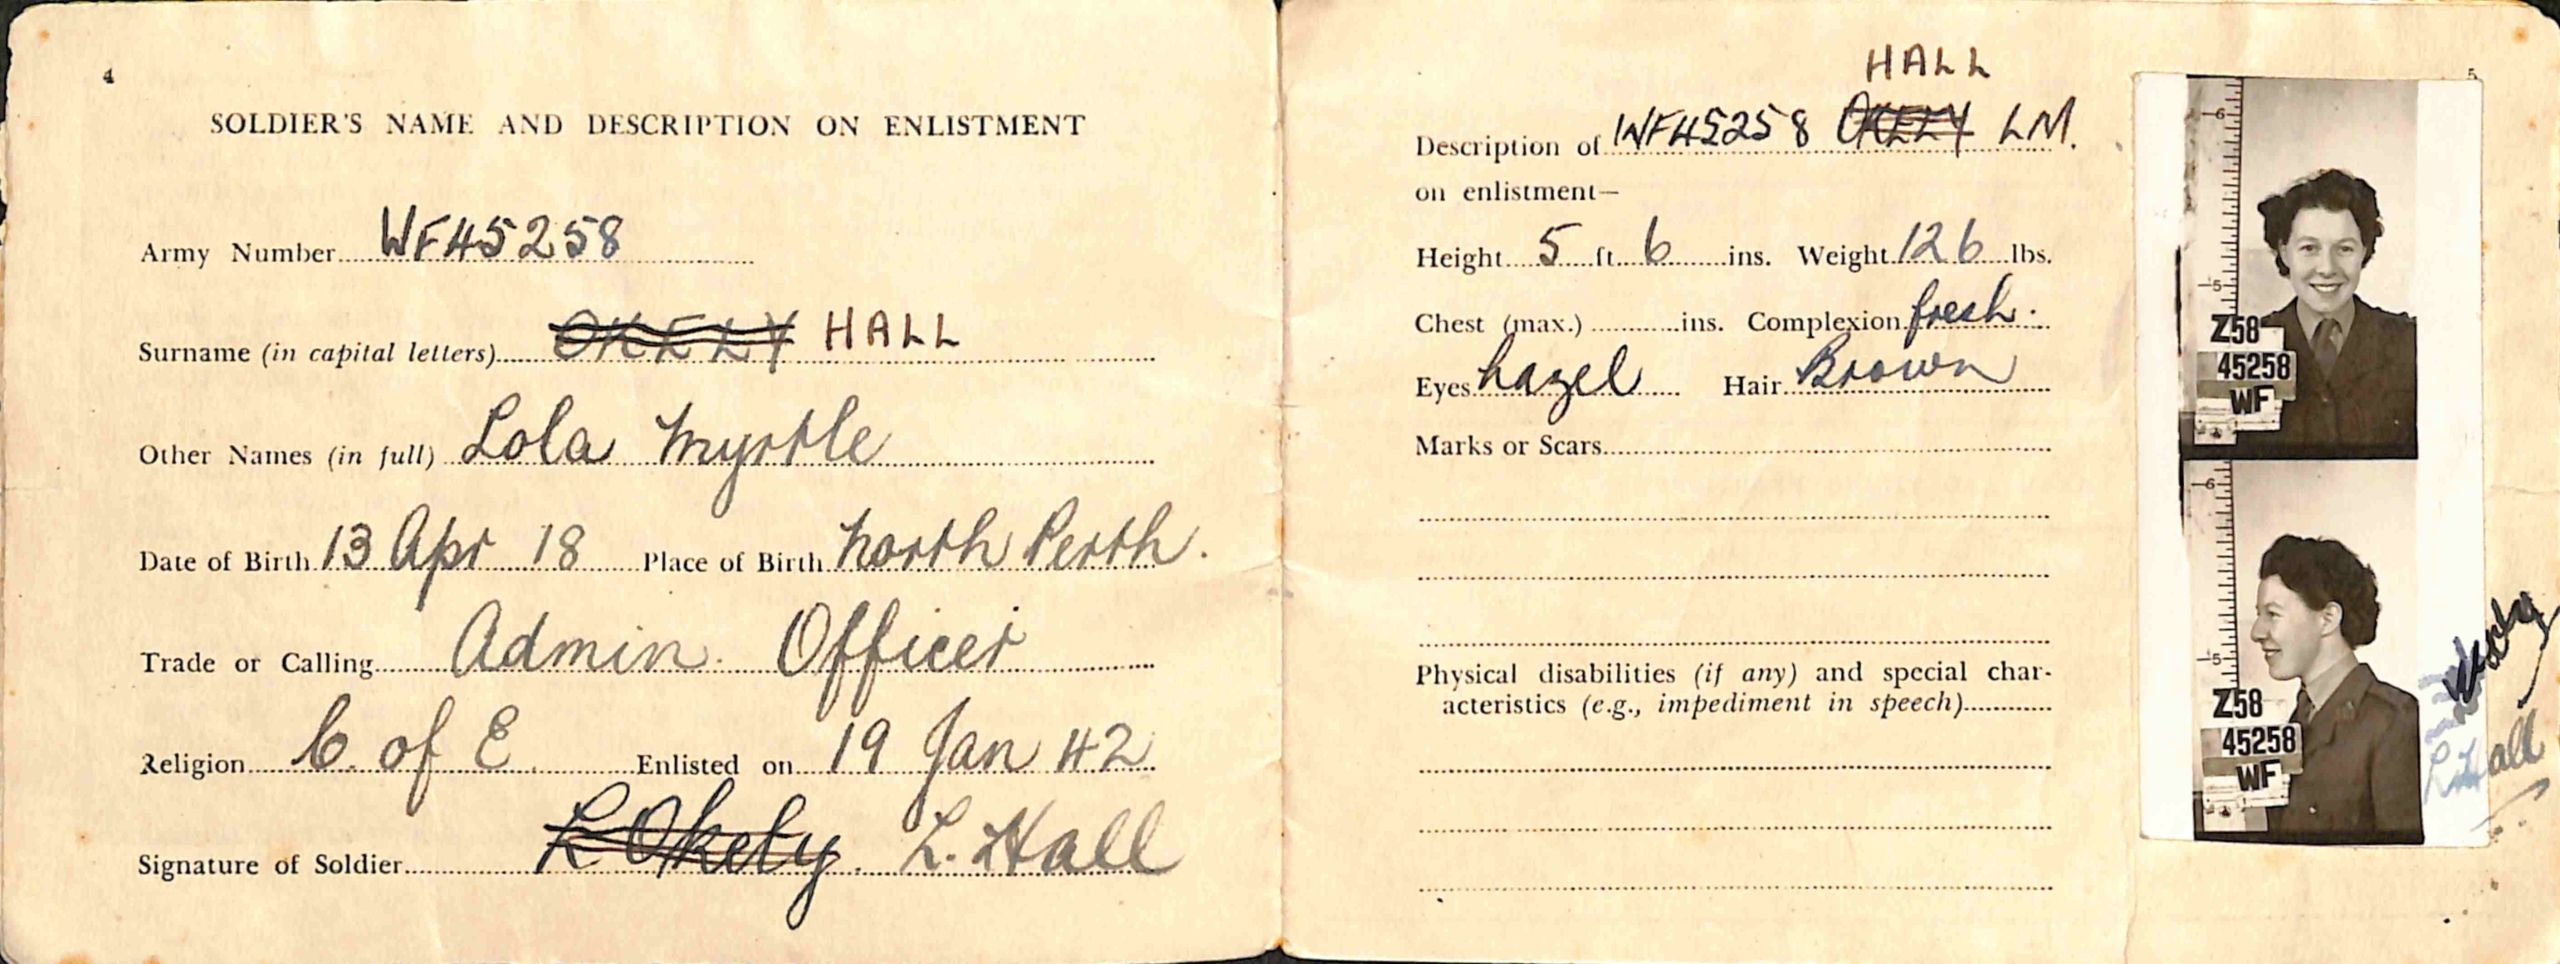 4
SOLDIER'S NAME AND DESCRIPTION ON ENLISTMENT
Army Number WF45258
Surname (in capital letters) OKELY HALL
Other Names (in full) Lola Myrtle
Date of Birth 13 Apr 18 Place of Birth North Perth.
Trade or Calling Admin. Officer
Religion C. of E. Enlisted on 19 Jan 42
Signature of Soldier L Okely. L. Hall
5
HALL
Description of WF45258 OKELY L M.
on enlistment—
Height 5 ft 6 ins. Weight 126 lbs.
Chest (max.) ins. Complexion fresh.
Eyes hazel Hair Brown
Marks or Scars
Physical disabilities (if any) and special char-
acteristics (e.g., impediment in speech)
6
5
Z58
45258
WF
6
5
Z58
45258
WF
L Hall